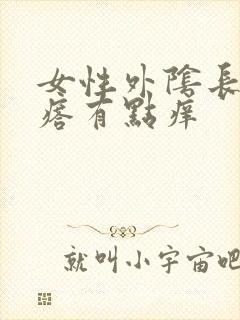 女性外陰長
痞有點痒
就叫小宇宙吧